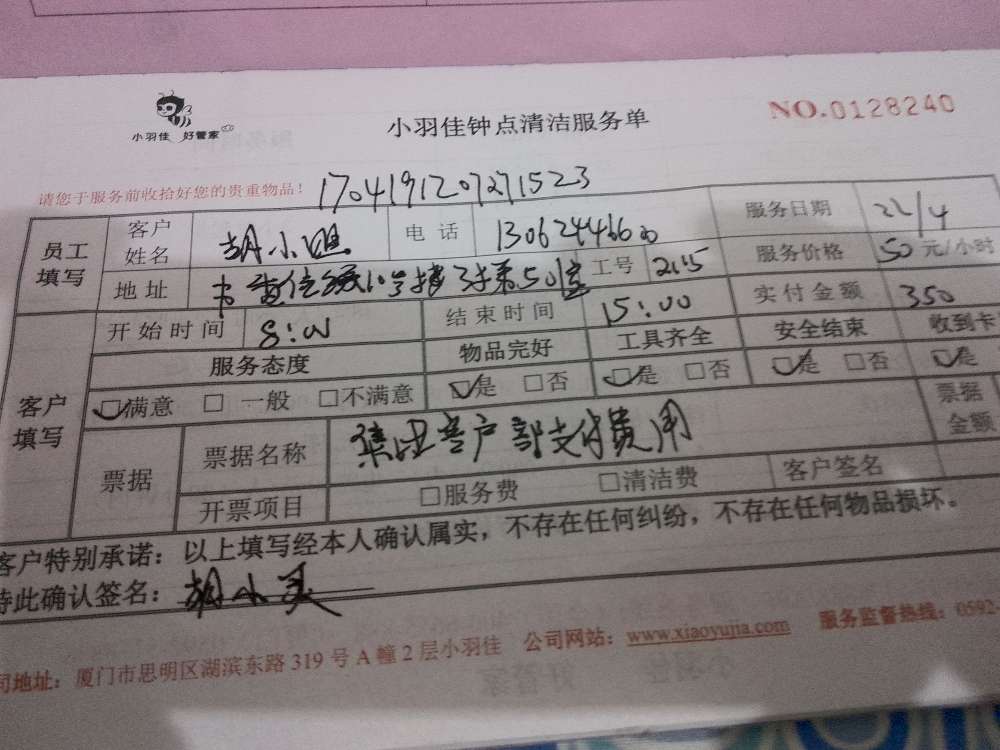 小羽佳 好管家
小羽佳钟点清洁服务单
NO.0128240
请您于服务前收拾好您的贵重物品！
1704191207271523
员工填写
客户姓名 胡小 电话 服务日期 22/4
地址 工号 2115 服务价格 50元/小时
客户填写
开始时间 8:00 结束时间 15:00 实付金额 350
服务态度 物品完好 工具齐全 安全结束 收到卡
☑满意 □ 一般 □不满意 ☑是 □否 ☑是 □否 ☑是 □否 ☑是
票据 票据名称 客户部支付费用 票据金额
开票项目 □服务费 □清洁费 客户签名
客户特别承诺：以上填写经本人确认属实，不存在任何纠纷，不存在任何物品损坏。
特此确认签名：胡小英
司地址：厦门市思明区湖滨东路 319 号 A 幢 2 层小羽佳 公司网站：www.xiaoyujia.com 服务监督热线：0592